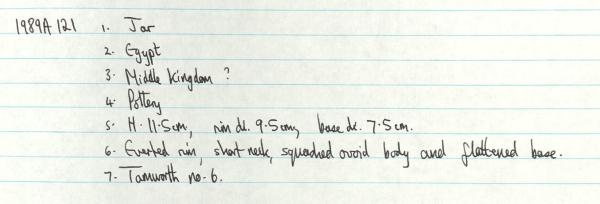 1989A121 1. Jar
2. Egypt
3. Middle Kingdom ?
4. Pottery
5. H. 11.5cm, rim di. 9.5cm, base di. 7.5cm.
6. Everted rim, short neck, squashed ovoid body and flattened base.
7. Tamworth no. 6.